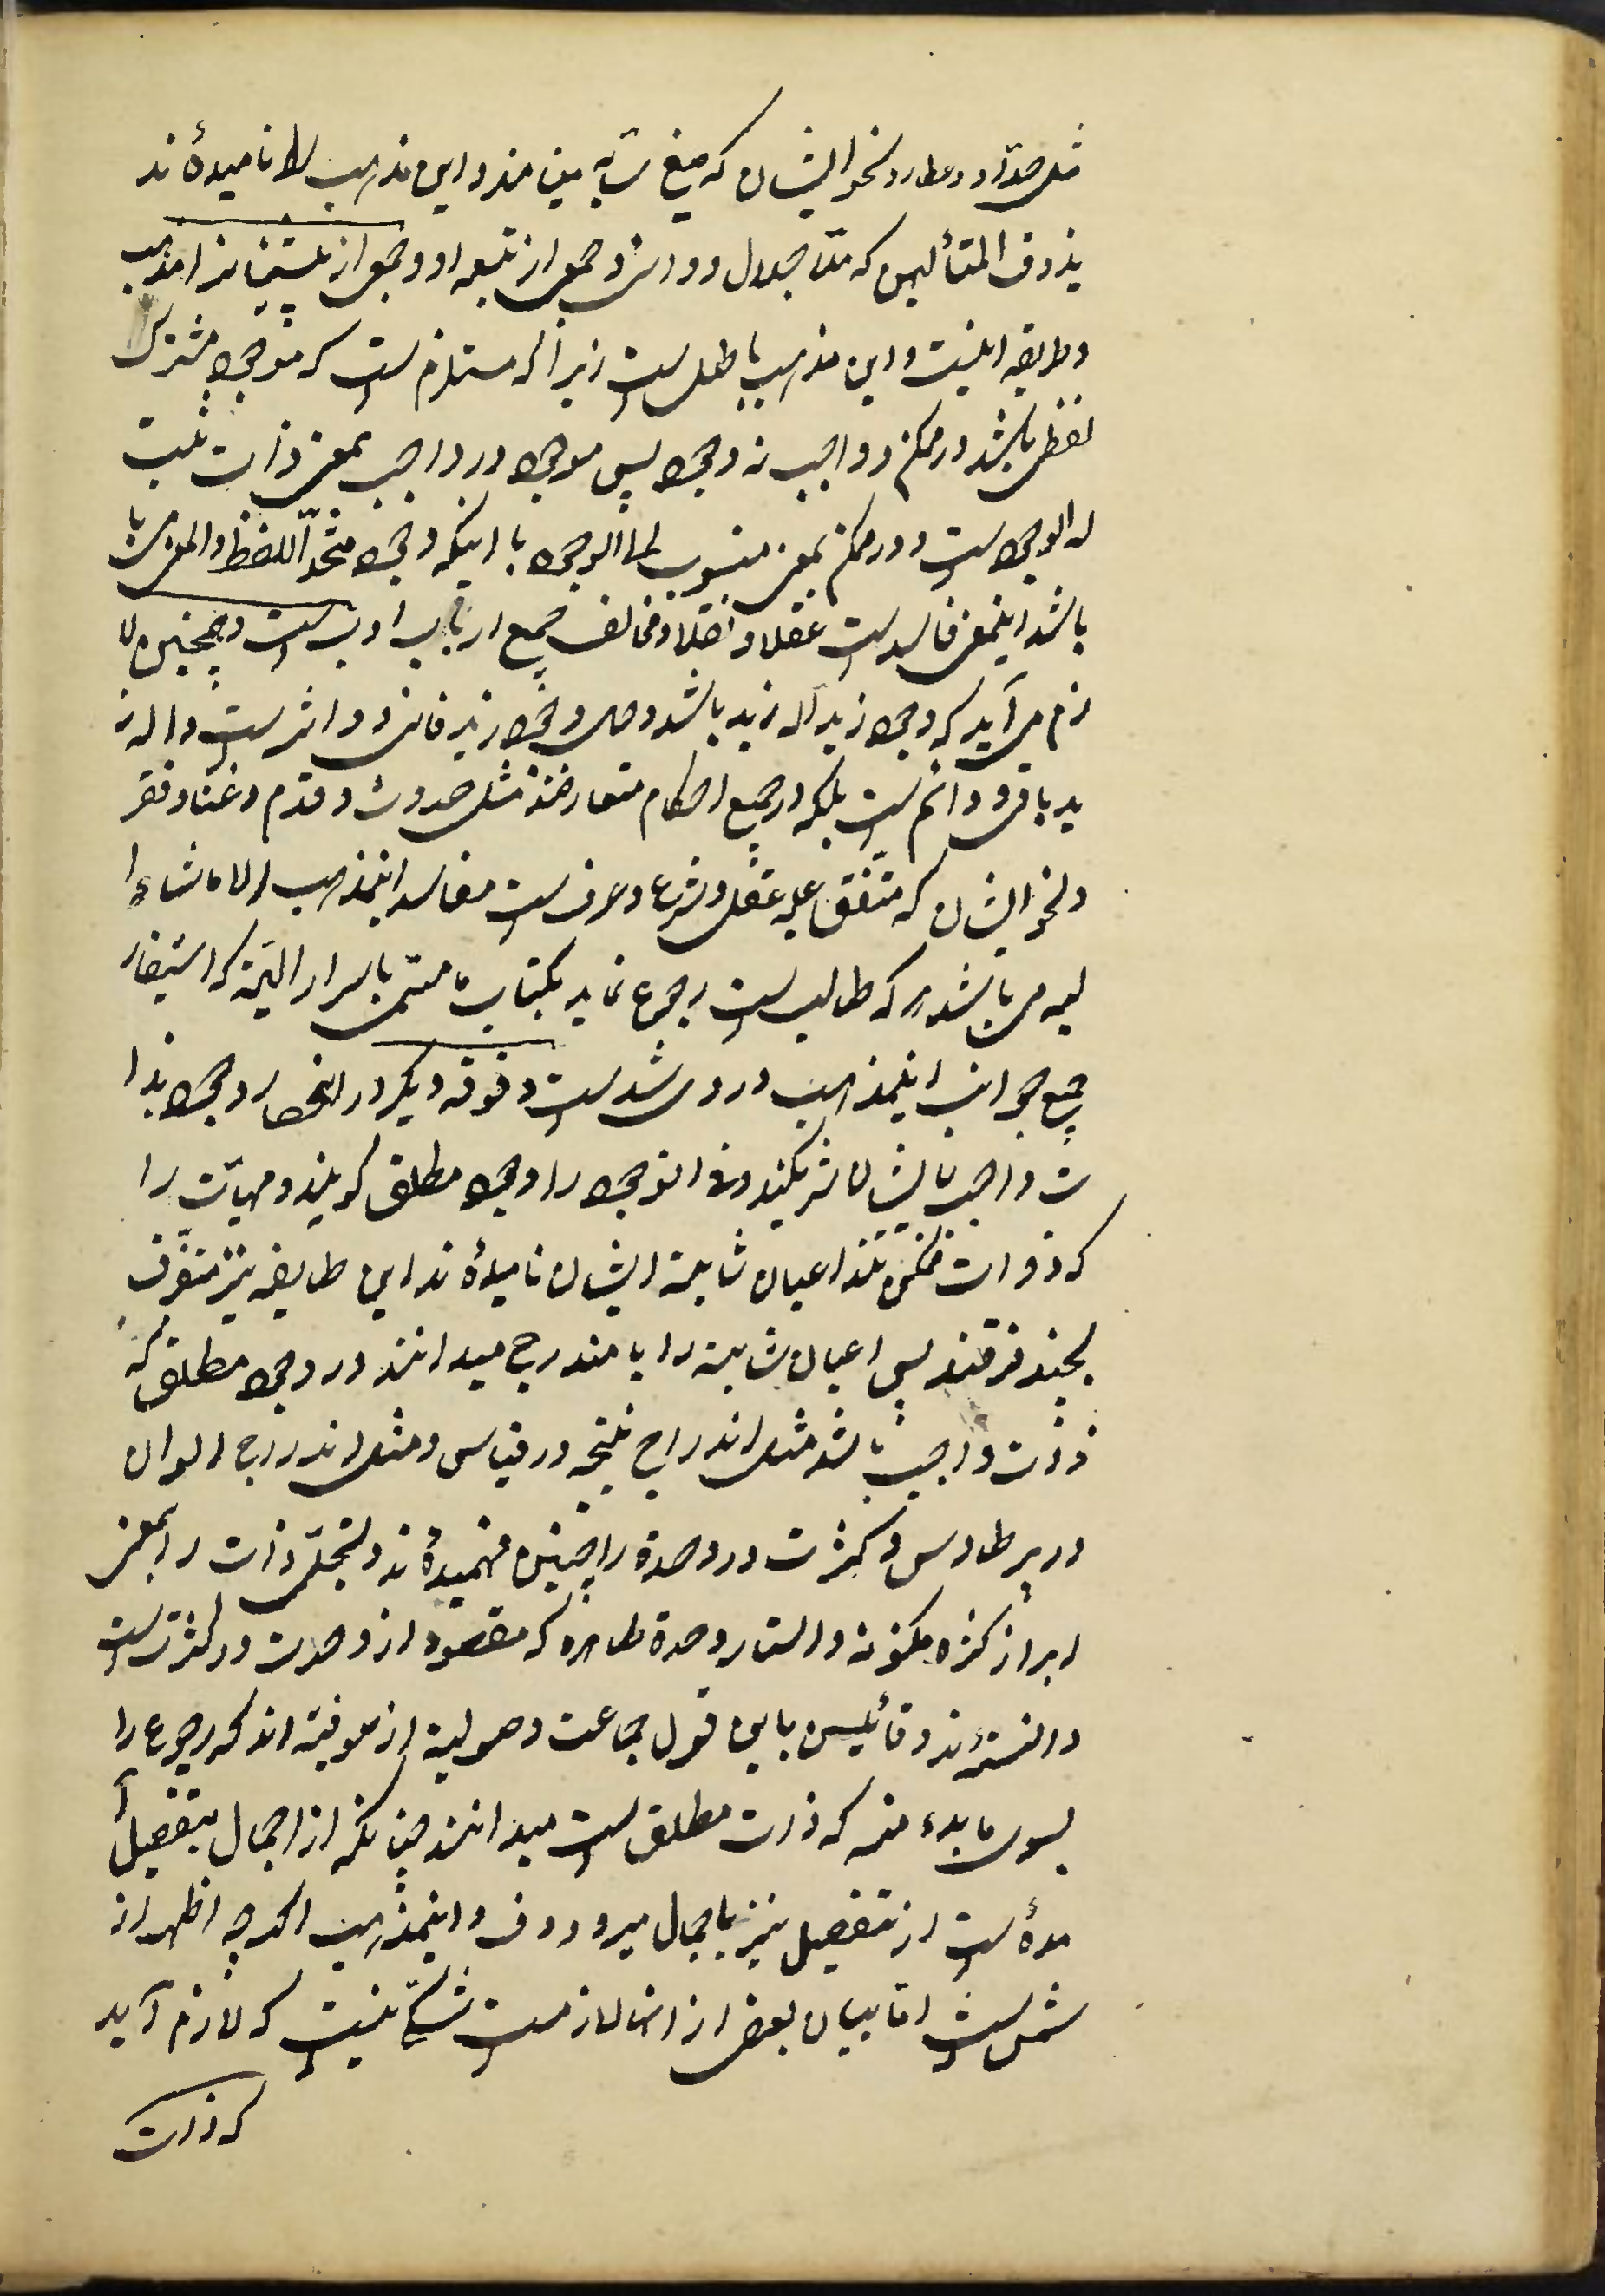 مثل حدّاد و عطار و نحو ایشان که صیغ نسبه مینامند و این مذهب را نامیدهٔ ند
بذوق المتألهین که ملا جلال دوانی و جمعی از تبعه او و جمعی از مستیناند مذهب
و طریقه اینست و این مذهب باطل است زیرا که مستلزم است که موجود مشترک
لفظی باشد در ممکن و واجب نه وجود پس موجود در واجب بمعنی ذات ثبت
له الوجود است و در ممکن بمعنی منسوب الی الوجود با اینکه وجود متحد اللفظ و المعنی با
باشد اینمعنی فاسد است عقلا و نقلا و مخالف جمیع ارباب ادب است و همچنین لا
زم می آید که وجود زید اله زید باشد و حال وجود زید فانی و داثر است و اله ز
ید باقی و دائم است بلکه در جمیع احکام متعارضة مثل حدوث و قدم و غنا و فقر
و نحو ایشان که متفق علیه عقل و شرعا و عرف است مفاسد اینمذهب الا ماشاء ا
لله می باشد هر که طالب است رجوع نماید بکتاب ما مسمّی باسرار الهیّة که استیفاء
جمیع جوانب اینمذهب در وی شد است و فرقه دیگر در انحصار وجود بذا
ت واجب با ایشان شریکند و این وجود را وجود مطلق گویند و مهیّات را
که ذوات ممکن تند اعیان ثابتة ایشان نامیدهٔ ند این طایفه نیز متفرّق
بچند فرقند پس اعیان ثابته را یا مندرج میدانند در وجود مطلق که
ذات واجب باشد مثل اندراج نتیجه در قیاس و مثل اندراج الوان
در پر طاوس و کثرت در وحدة را چنین فهمیدهٔ ند و تجلّی ذات را بمعنی
ابراز کثرة مکنونه و استار وحدة ظاهره که مقصود از وحدت در کثرت است
دانستهٔ ند و قائلین باین قول جماعت وصولیه از صوفیّه اند که رجوع را
بسوی ما بدء منه که ذات مطلق است میدانند چنانکه از اجمال بتفصیل آ
مدهٔ است از تفصیل نیز باجمال میرود و ف و اینمذهب اگر چه اظهر از
شمس است اما بیان بعض از انها لازمست شکّی نیست که لازم آید
که ذات